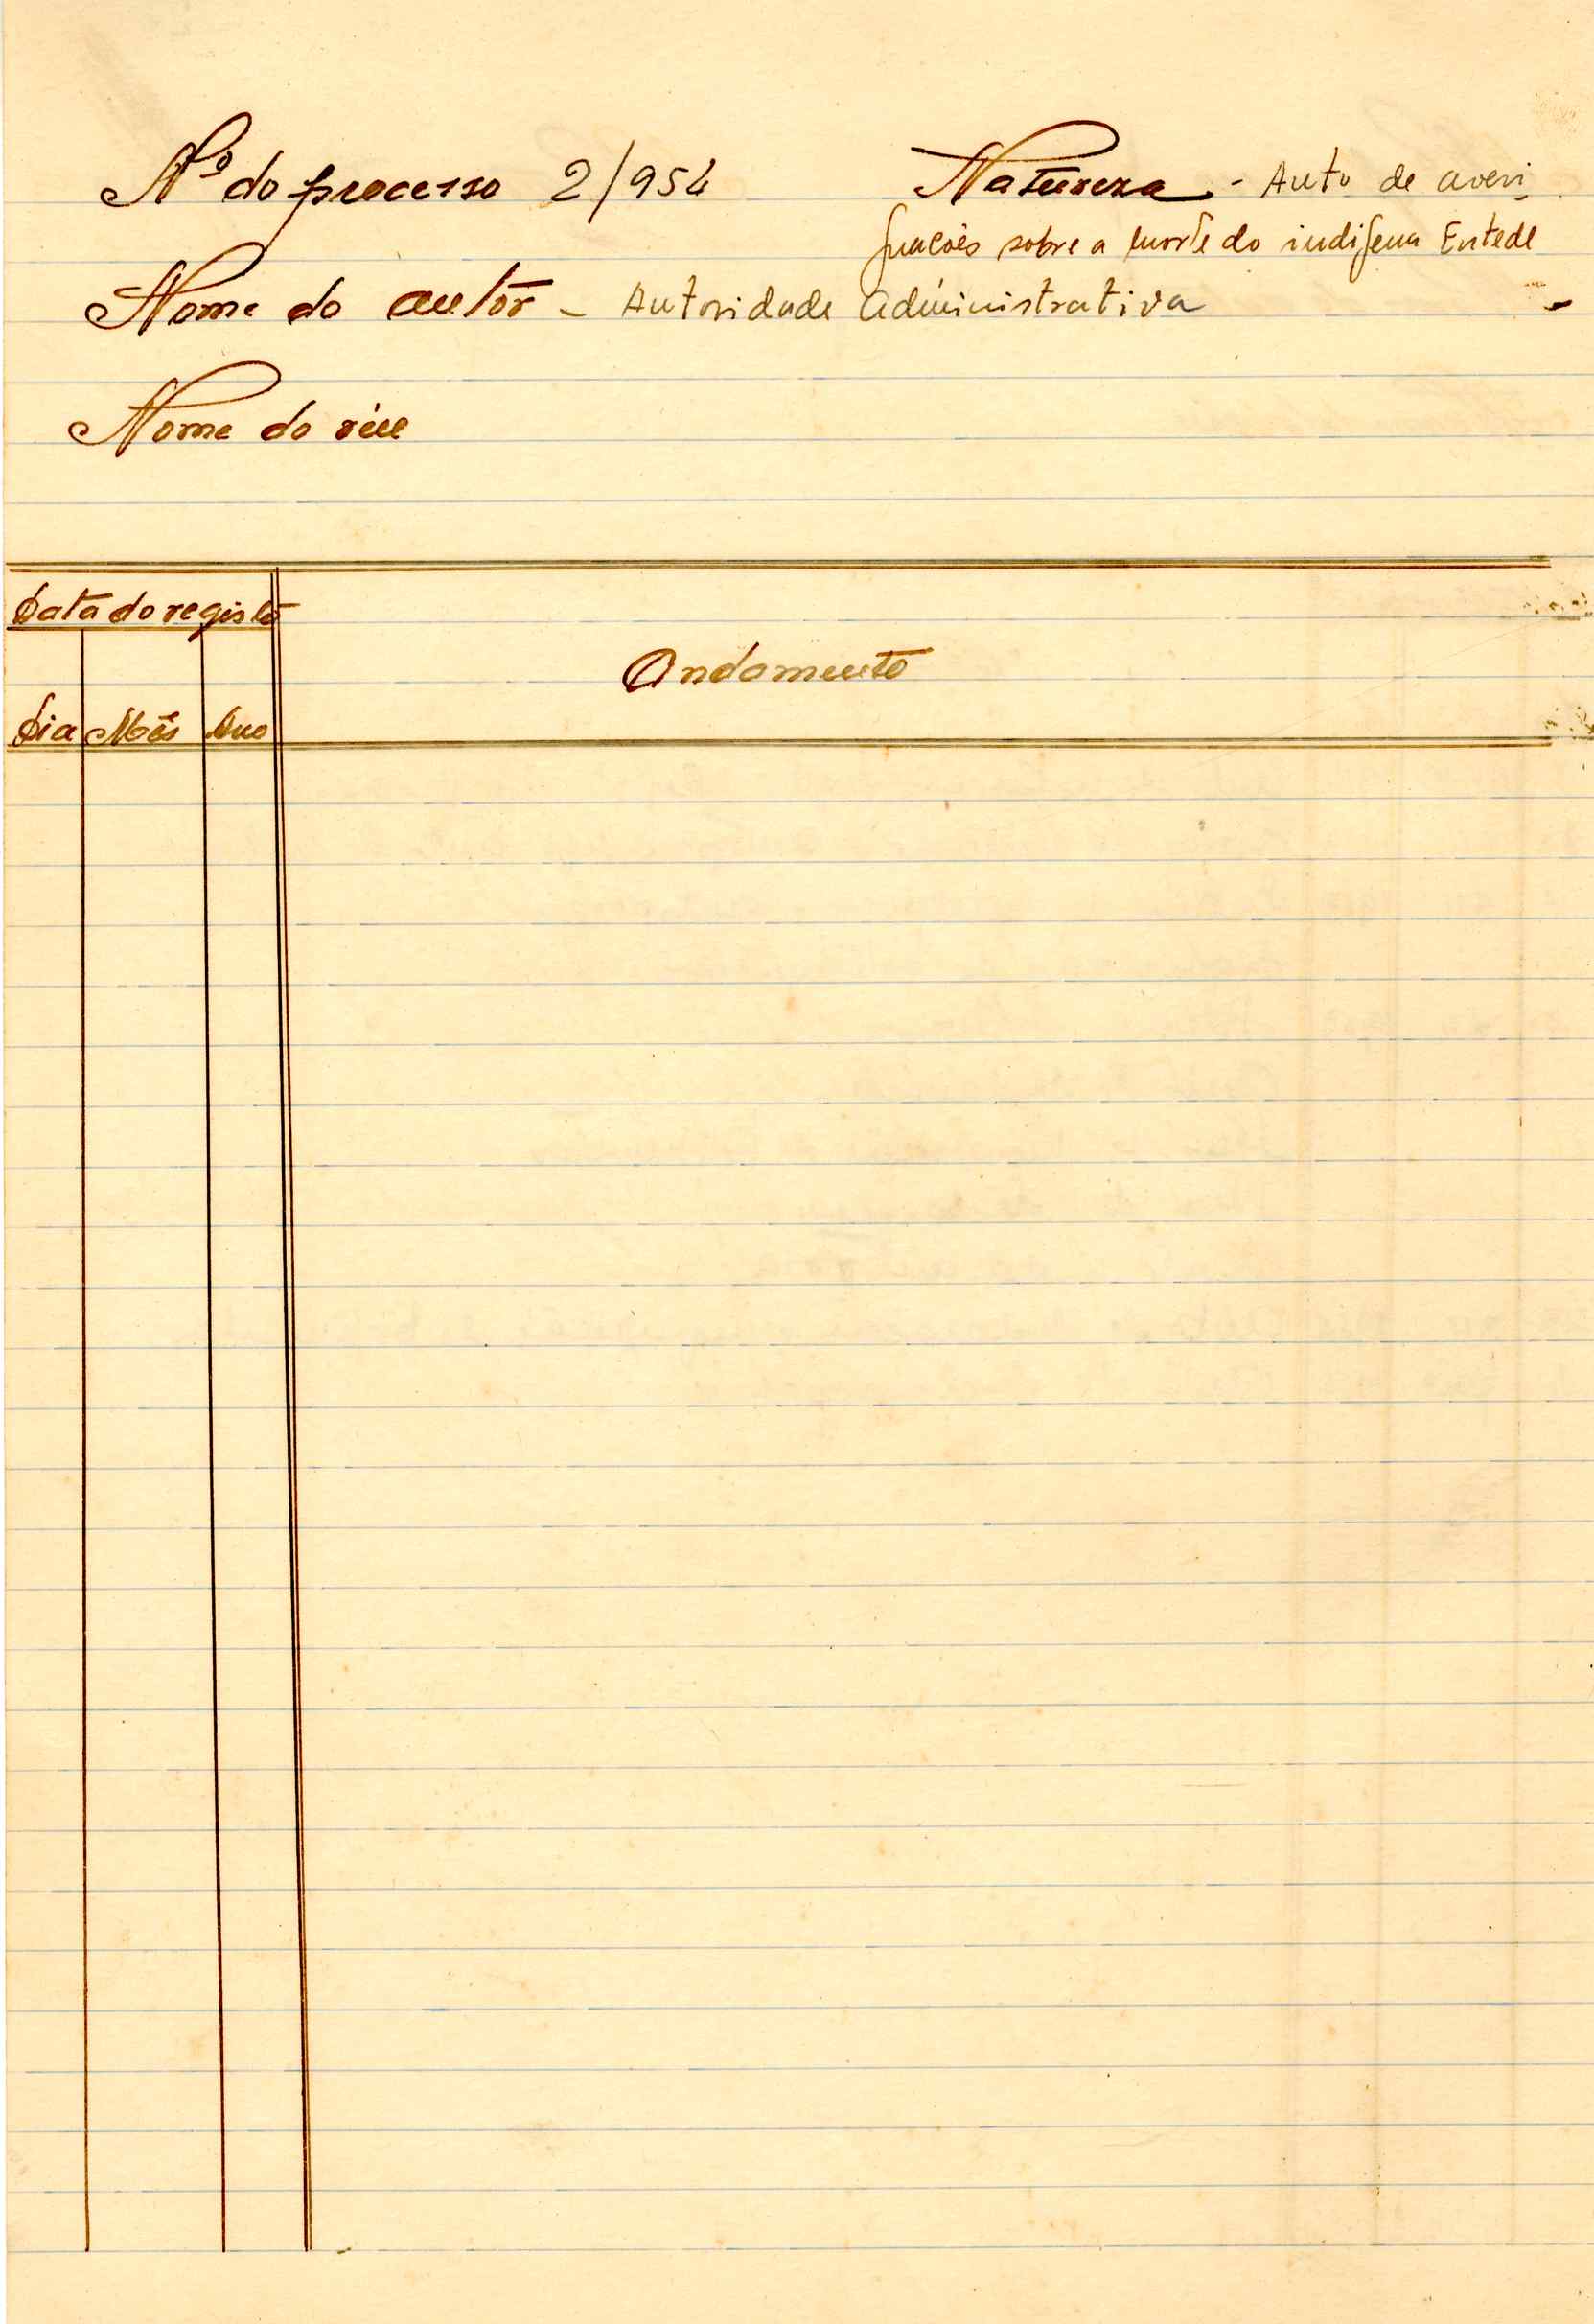 Nº do processo 2/954 Natureza - Auto de averi-
guacões sobre a morte do indigena Entede
Nome do autôr - Autoridade Administrativa
Nome do réu
Data do registo
Andamento
Dia Mês Ano